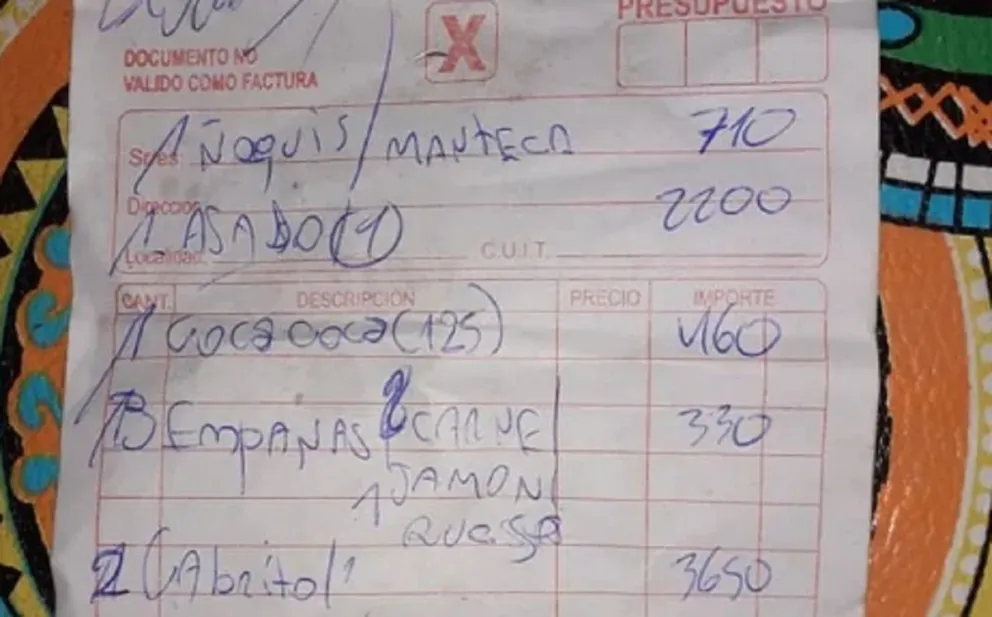 PRESUPUESTO
X
DOCUMENTO NO
VALIDO COMO FACTURA
Sres
1 ÑOQUIS / MANTECA 710
Dirección
1 ASADO (1) 2200
Localidad C.U.I.T.
CANT. DESCRIPCION PRECIO IMPORTE
1 COCA COCA (125) 460
3 EMPANAS 2 CARNE 330
1 JAMON
QUESO
2 CAbrito 3650